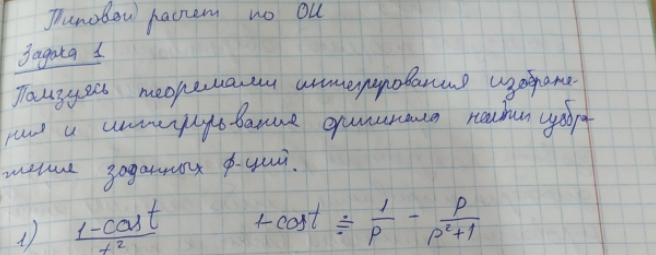 Типовой расчет по ОИ
Задача 1
Пользуясь теоремами интегрирования изображе-
ния и интегрирование оригинала найти изобра-
жение заданных ф-ций.
1) (1-cos t)/t² 1-cos t ≑ 1/p - p/(p²+1)